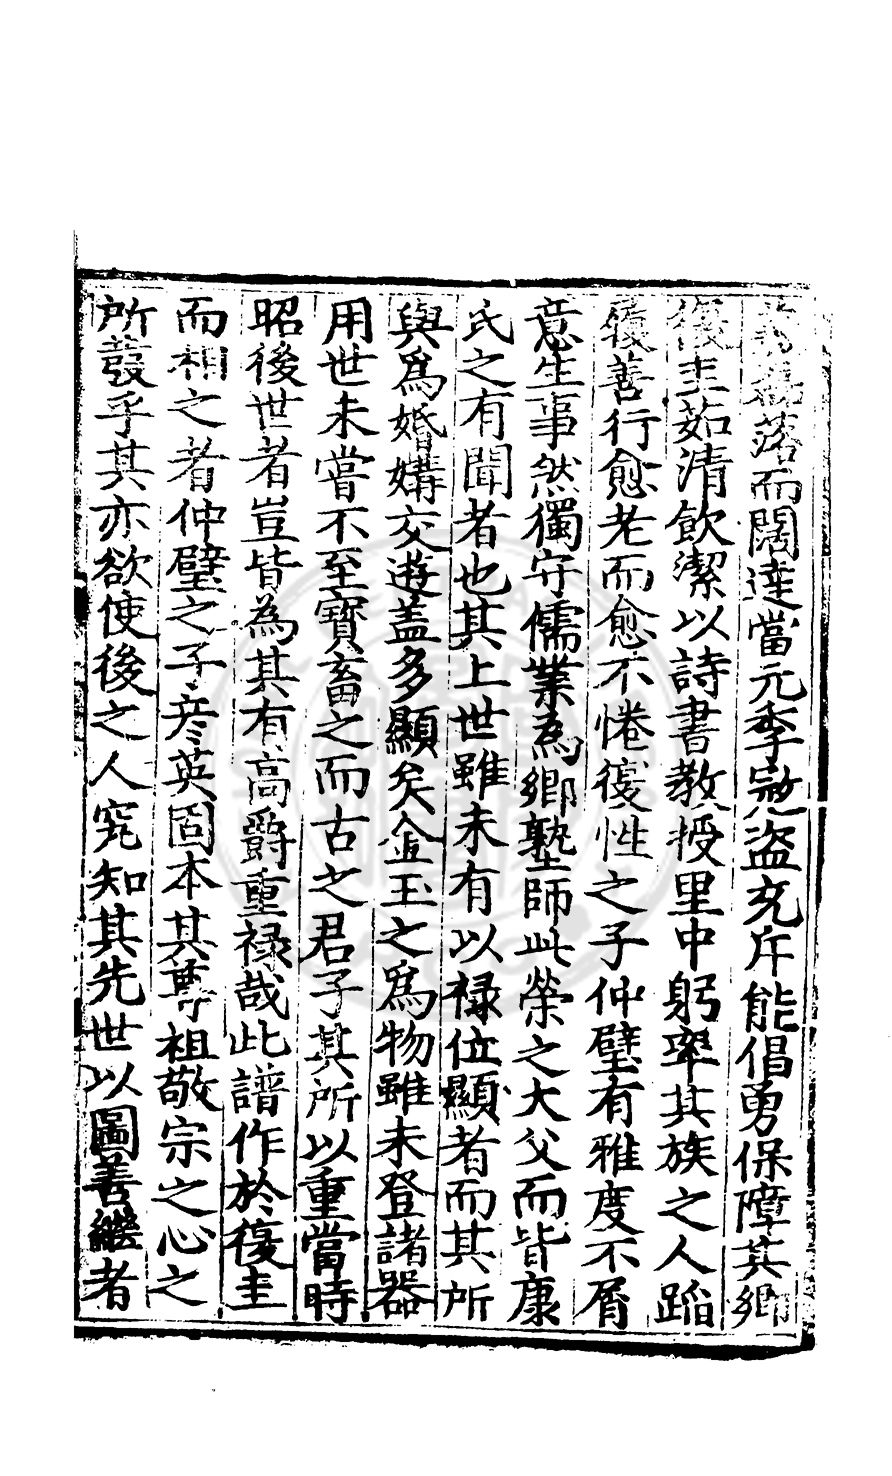 落而闊達當元季寇盜充斥能倡勇保障其鄉
復圭茹清飲潔以詩書教授里中躬率其族之人蹈
履善行愈老而愈不惓復性之子仲璧有雅度不屑
意生事然獨守儒業為鄉塾師此榮之大父而皆康
氏之有聞者也其上世雖未有以祿位顯者而其所
與爲婚媾交遊盖多顯矣金玉之爲物雖未登諸器
用世未嘗不至寳畜之而古之君子其所以重當時
昭後世者豈皆為其有高爵重祿哉此譜作於復圭
而相之者仲璧之子彦英固本其尊祖敬宗之心之
所發乎其亦欲使後之人究知其先世以圖善繼者